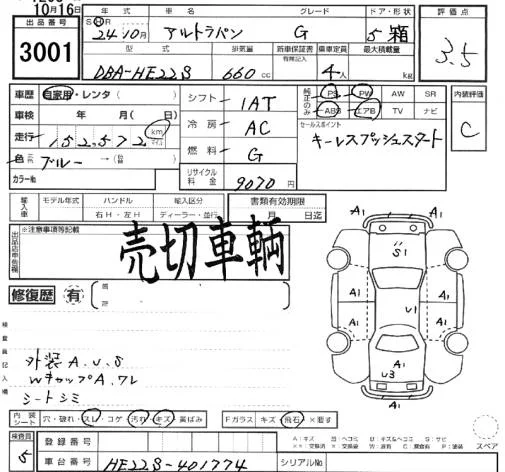 10月16日
出品番号
3001
年式 車名 グレード ドア・形状
S H R
24年10月 アルトラパン G 5 箱
型式 排気量 新車保証書 乗車定員 最大積載量
有無記入
DBA-HE22S 660cc 4人 kg
評価点
3.5
車歴 自家用・レンタ( )
車検 年 月( 日)
走行 152,572 km
色 元色 ブルー → 色替
カラー№
シフト 1AT
冷房 AC
燃料 G
リサイクル料金 9070円
純正のみ PS PW AW SR
ABS エアB TV ナビ
セールスポイント
キーレスプッシュスタート
内装評価
C
輸入車 モデル年式 ハンドル 輸入区分
右H・左H ディーラー・並行
書類有効期限
月 日迄
出品店申告欄
※注意事項等記載
売切車輌
修復歴 有 箇所
検査員記入欄
外装A.U.S
WキャップA.ワレ
シートシミ
A1 A1
S1
A1 A1 A1
U1
U3
A1 A1
スペア
内装シート 穴・破れ・スレ・コゲ・汚れ・キズ・黄ばみ
Fガラス キズ・飛石・×要す
A：キズ B：ヘコミ U：キズ&ヘコミ S：サビ
××：交換済 X：要交換 W：波有 C：腐食有 P：塗装
検査員
5
登録番号
車台番号 HE22S-401774
シリアル№